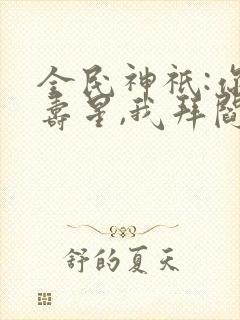 全民神祇:你
寿星,我拜阎
舒的夏天